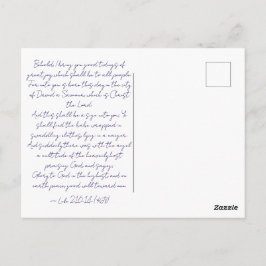 Behold, I bring you good tidings of
great joy, which shall be to all people.
For unto you is born this day in the city
of David a Saviour, which is Christ
the Lord.
And this shall be a sign unto you; Ye
shall find the babe wrapped in
swaddling clothes, lying in a manger.
And suddenly there was with the angel
a multitude of the heavenly host
praising God, and saying,
Glory to God in the highest, and on
earth peace, good will toward men.
Zazzle